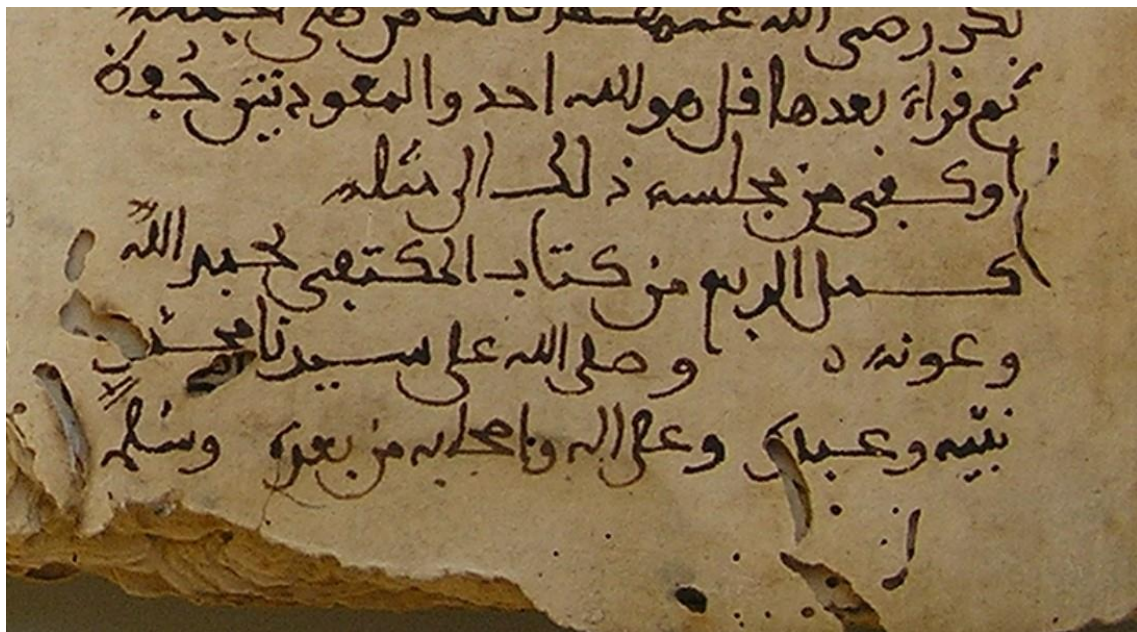 بكر رضي الله عنهما
ثم قراة بعدها قل هو الله احد والمعوذتين
او كفى من مجلسه ذلك الى مثله
كمل الربع من كتاب المكتفي بحمد الله
وعونه وصلى الله على سيدنا محمد
نبيه وعبده وعلى اله واصحابه من بعده وسلم